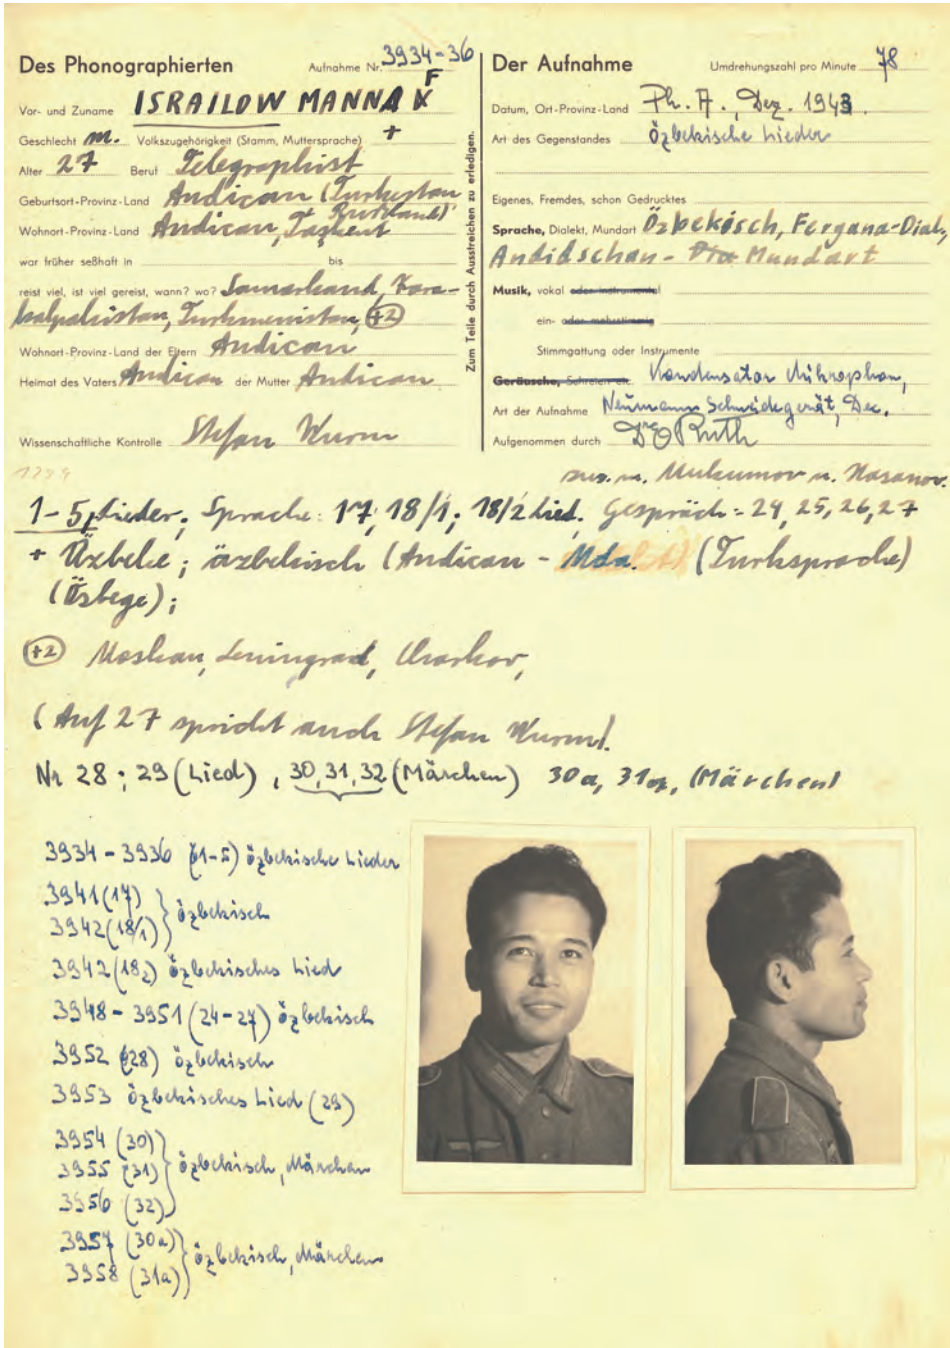 Des Phonographierten Aufnahme Nr. 3934-36
Vor- und Zuname ISRAILOW MANNA F
Geschlecht m. Volkszugehörigkeit (Stamm, Muttersprache) +
Alter 27 Beruf Telegraphist
Geburtsort-Provinz-Land Andican (Turkestan
Wohnort-Provinz-Land Andican, Taşkent
war früher seßhaft in bis
reist viel, ist viel gereist, wann? wo? Samarkand, Kara-
kalpakistan, Turkmenistan, +2
Wohnort-Provinz-Land der Eltern Andican
Heimat des Vaters Andican der Mutter Andican
Wissenschaftliche Kontrolle Stefan Wurm
Zum Teile durch Ausstreichen zu erledigen.
Der Aufnahme Umdrehungszahl pro Minute 78
Datum, Ort-Provinz-Land Ph. A., Dez. 1943.
Art des Gegenstandes özbekische Lieder
Eigenes, Fremdes, schon Gedrucktes
Sprache, Dialekt, Mundart Özbekisch, Fergana-Dial.,
Andidschan- Mundart
Musik, vokal oder instrumental
ein- oder mehrstimmig
Stimmgattung oder Instrumente
Geräusche, Schreien etc. Kondensator Mikrophon,
Art der Aufnahme Neumann Schneidegerät, Dec.
Aufgenommen durch Dr Ruth
zus. m. Mukumov u. Hasanov.
1-5 Lieder; Sprache: 17, 18/1; 18/2 Lied. Gespräch = 24, 25, 26, 27
+ Özbeke; özbekisch (Andican - Mda.) (Turksprache)
(Özbege);
+2 Moskau, Leningrad, Charkov,
(Auf 27 spricht auch Stefan Wurm).
Nr 28; 29 (Lied), 30, 31, 32 (Märchen) 30a, 31a, (Märchen)
3934 - 3936 (1-5) özbekische Lieder
3941 (17)
3942 (18/1) } özbekisch
3942 (18/2) özbekisches Lied
3948 - 3951 (24-27) özbekisch
3952 (28) özbekisch
3953 özbekisches Lied (29)
3954 (30)
3955 (31) } özbekisch, Märchen
3956 (32)
3957 (30a)
3958 (31a) } özbekisch, Märchen